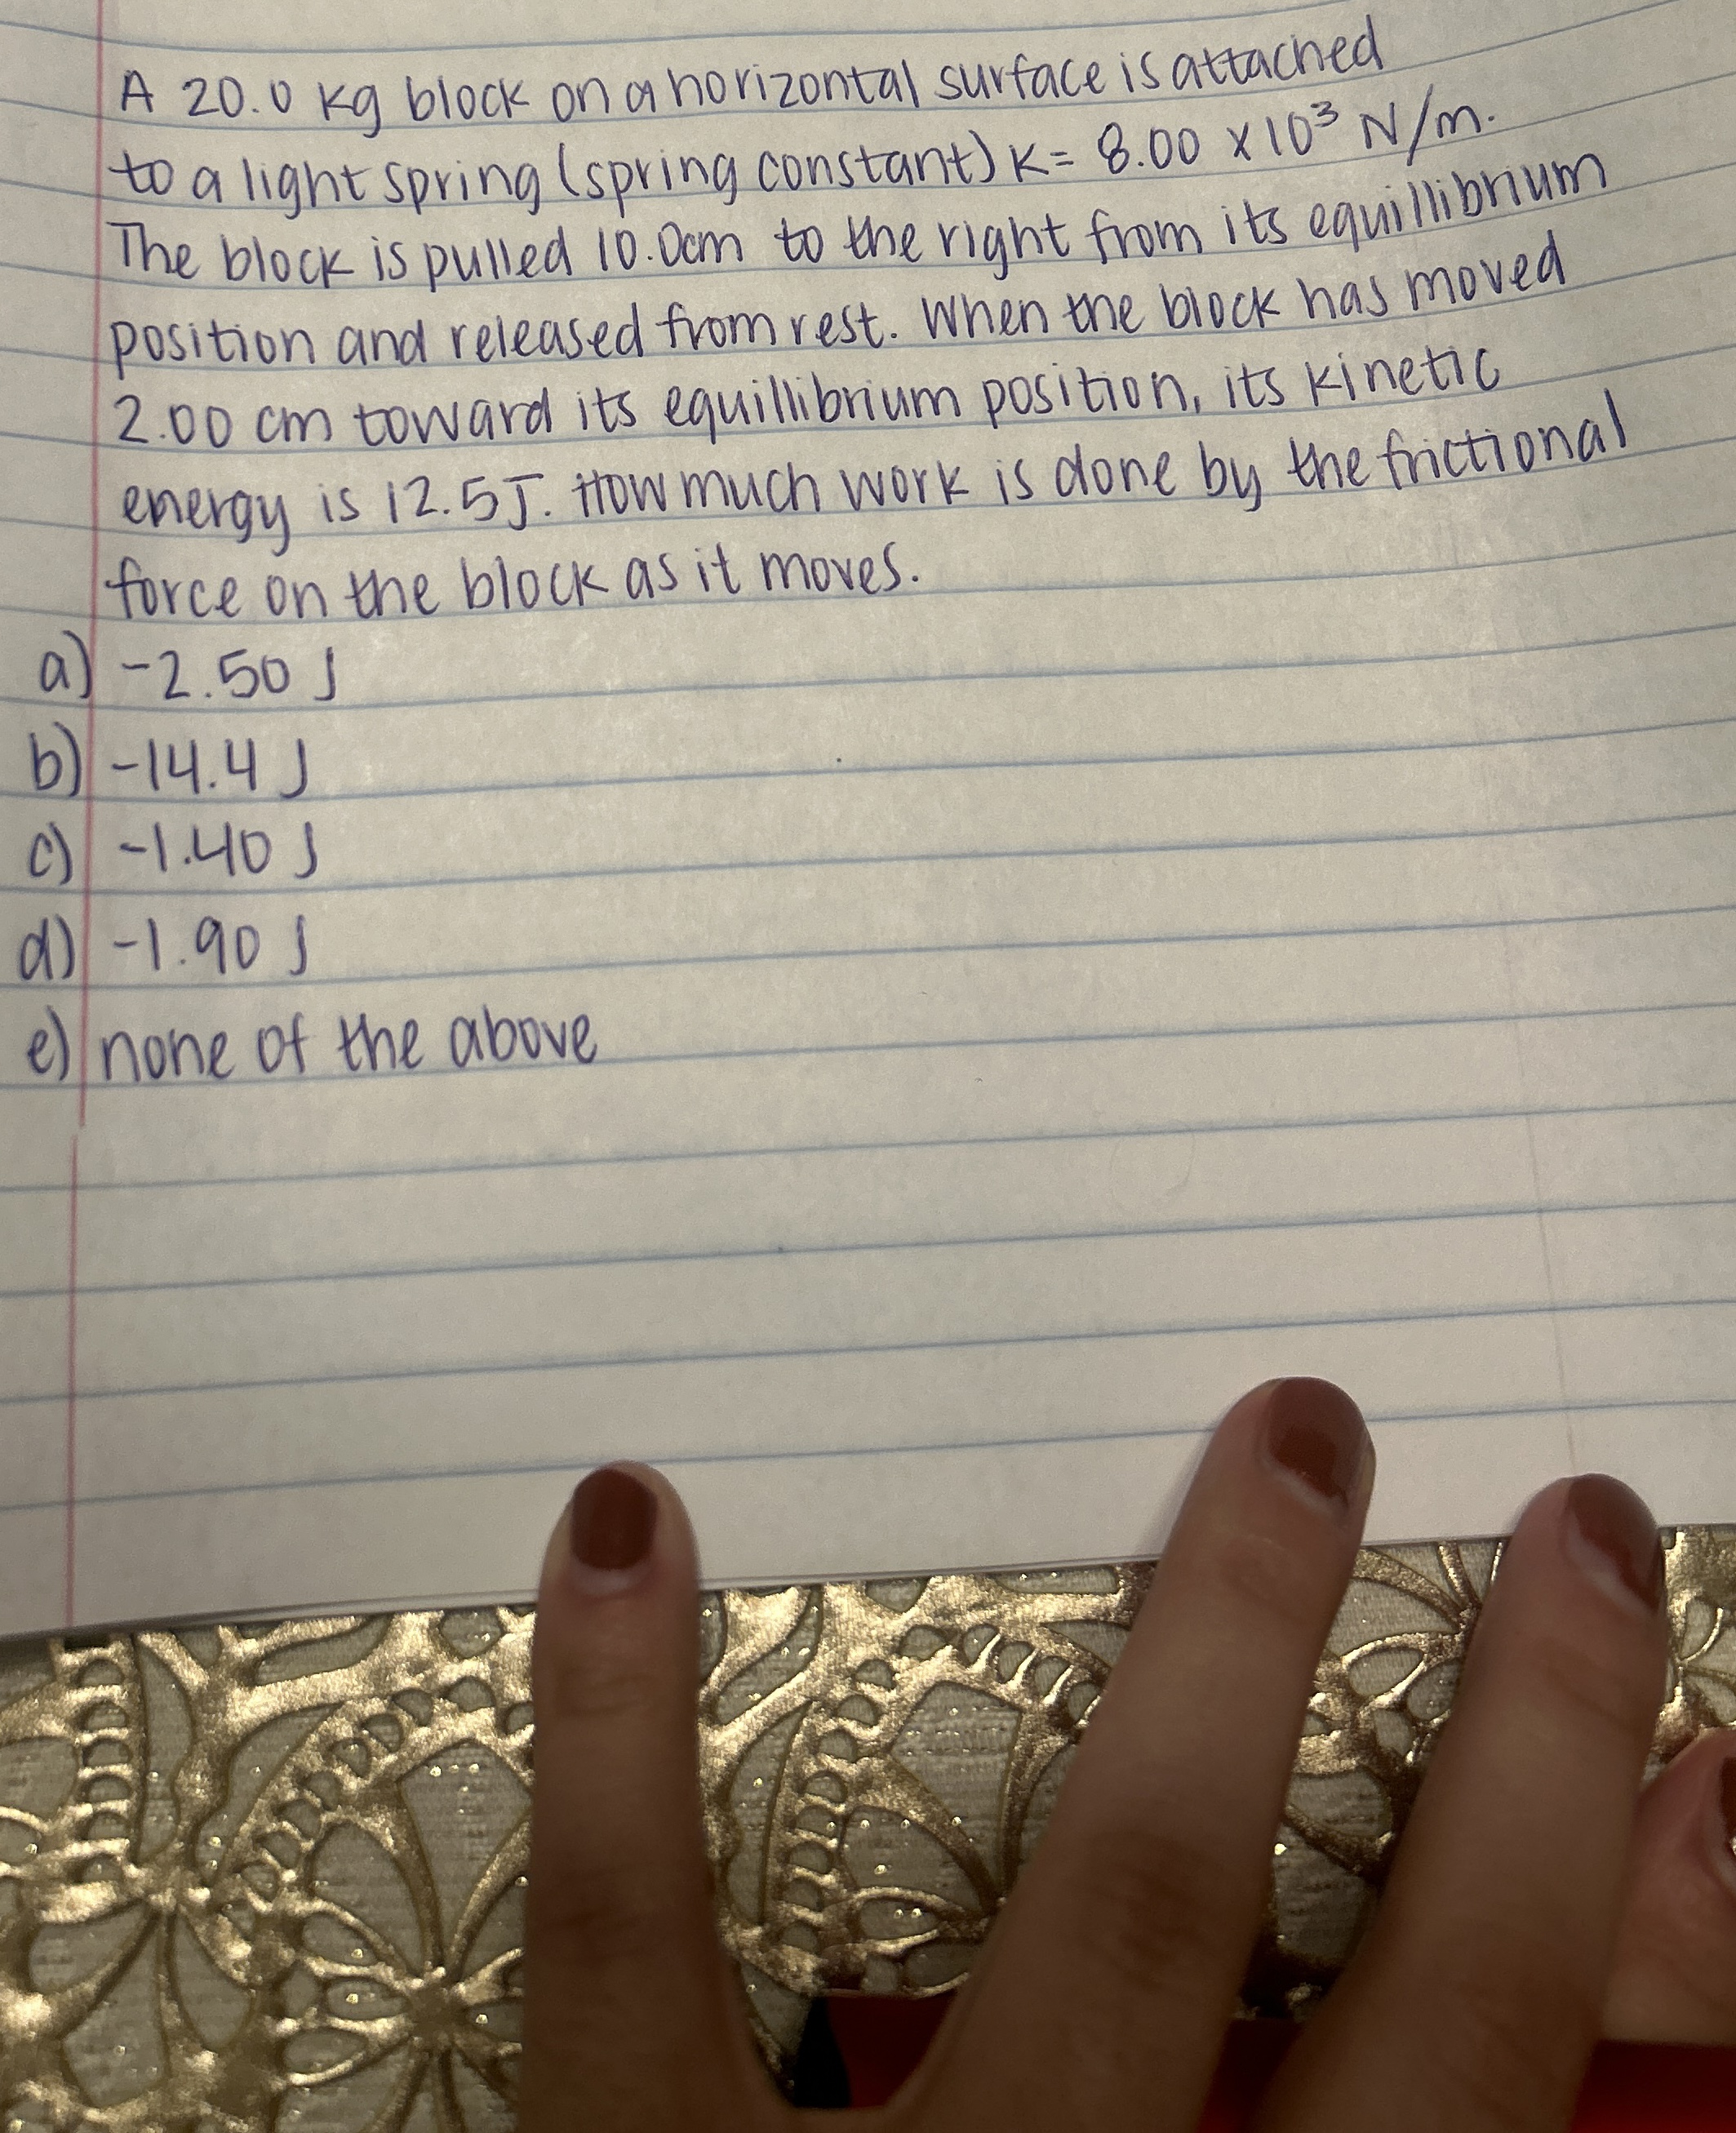 A 20.0 kg block on a horizontal surface is attached
to a light spring (spring constant) K= 8.00 x10³ N/m.
The block is pulled 10.0cm to the right from its equillibrium
position and released from rest. When the block has moved
2.00 cm toward its equillibrium position, its kinetic
energy is 12.5J. How much work is done by the frictional
force on the block as it moves.
a) -2.50 J
b) -14.4 J
c) -1.40 J
d) -1.90 J
e) none of the above